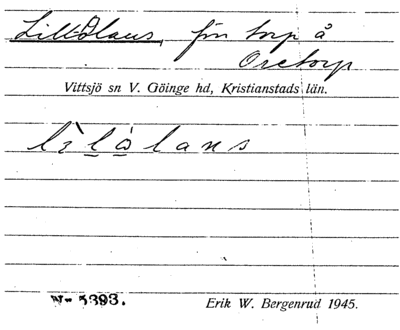 Lill-Olaus, förr torp å
Oretorp
Vittsjö sn V. Göinge hd, Kristianstads län.
lìlå laus
W- 5393.
Erik W. Bergenrud 1945.